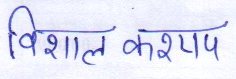 विशाल कश्यप